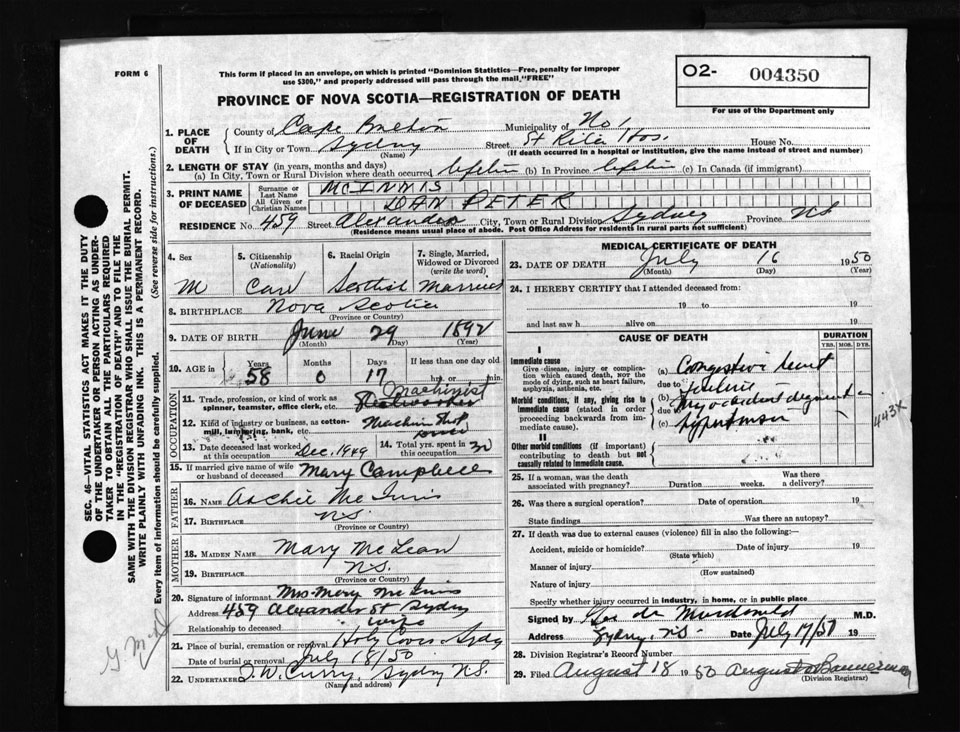 FORM 6
This form if placed in an envelope, on which is printed "Dominion Statistics—Free, penalty for improper
use $300," and properly addressed will pass through the mail "FREE"
O2- 004350
For use of the Department only
PROVINCE OF NOVA SCOTIA—REGISTRATION OF DEATH
1. PLACE OF DEATH
County of Cape Breton Municipality of No 1
If in City or Town Sydney Street St Rita Hos. House No.
(Name) (If death occurred in a hospital or institution, give the name instead of street and number)
2. LENGTH OF STAY (in years, months and days)
(a) In City, Town or Rural Division where death occurred lifetime (b) In Province lifetime (c) In Canada (if immigrant)
3. PRINT NAME OF DECEASED
Surname or Last Name McINNIS
All Given or Christian Names PETER
RESIDENCE No. 459 Street Alexander City, Town or Rural Division Sydney Province NS
(Residence means usual place of abode. Post Office Address for residents in rural parts not sufficient)
4. Sex
M
5. Citizenship
(Nationality)
Can
6. Racial Origin
Scottish
7. Single, Married,
Widowed or Divorced
(write the word)
Married
8. BIRTHPLACE Nova Scotia
(Province or Country)
9. DATE OF BIRTH June 29 1892
(Month) (Day) (Year)
10. AGE in
Years Months Days If less than one day old
58 0 17 hrs. or min.
OCCUPATION
11. Trade, profession or kind of work as
spinner, teamster, office clerk, etc. Machinist
12. Kind of industry or business, as cotton-
mill, lumbering, bank, etc. Machine Shop
13. Date deceased last worked
at this occupation Dec. 1949
14. Total yrs. spent in
this occupation 30
15. If married give name of wife
or husband of deceased Mary Campbell
FATHER
16. NAME Archie Mc Innis
17. BIRTHPLACE NS.
(Province or Country)
MOTHER
18. MAIDEN NAME Mary McLean
19. BIRTHPLACE NS.
(Province or Country)
20. Signature of informant Mrs Mary Mc Innis
Address 459 Alexander St Sydney
Relationship to deceased wife
21. Place of burial, cremation or removal Holy Cross Sydney
Date of burial or removal July 18/50
22. UNDERTAKER T. W. Curry, Sydney N.S.
(Name and address)
MEDICAL CERTIFICATE OF DEATH
23. DATE OF DEATH July 16 1950
(Month) (Day) (Year)
24. I HEREBY CERTIFY that I attended deceased from:
19 to 19
and last saw h alive on 19
CAUSE OF DEATH
DURATION
YRS. MOS. DYS.
I
Immediate cause
Give disease, injury or complica-
tion which caused death, NOT the
mode of dying, such as heart failure,
asphyxia, asthenia, etc.
(a) Congestive heart
due to failure
Morbid conditions, if any, giving rise to
immediate cause (stated in order
proceeding backwards from im-
mediate cause).
(b) Myocardial
due to
(c) hypertension
443X
II
Other morbid conditions (if important)
contributing to death but not
causally related to immediate cause.
25. If a woman, was the death
associated with pregnancy? Duration weeks. Was there
a delivery?
26. Was there a surgical operation? Date of operation 19
State findings Was there an autopsy?
27. If death was due to external causes (violence) fill in also the following:—
Accident, suicide or homicide? Date of injury 19
(State which)
Manner of injury
(How sustained)
Nature of injury
Specify whether injury occurred in industry, in home, or in public place
Signed by Macdonald M.D.
Address Sydney, N.S. Date July 17/50 19
28. Division Registrar's Record Number
29. Filed August 18 1950
(Division Registrar)
SEC. 46—VITAL STATISTICS ACT MAKES IT THE DUTY
OF THE UNDERTAKER OR PERSON ACTING AS UNDER-
TAKER TO OBTAIN ALL THE PARTICULARS REQUIRED
IN THE "REGISTRATION OF DEATH" AND TO FILE THE
SAME WITH THE DIVISION REGISTRAR WHO SHALL ISSUE THE BURIAL PERMIT.
WRITE PLAINLY WITH UNFADING INK. THIS IS A PERMANENT RECORD.
Every item of information should be carefully supplied. (See reverse side for instructions.)